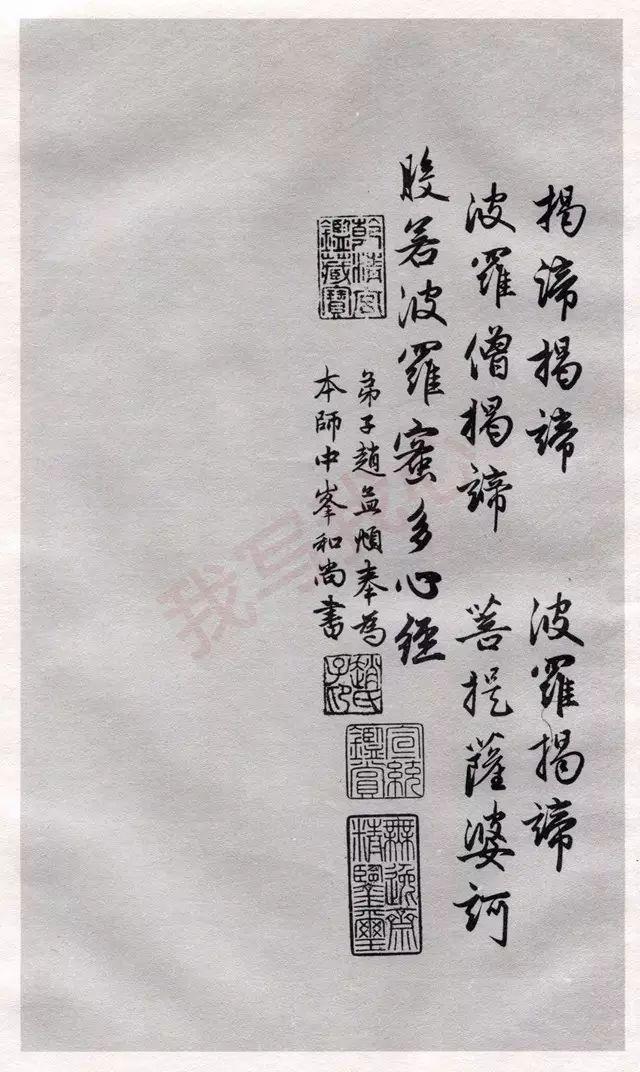 揭諦揭諦 波羅揭諦
波羅僧揭諦 菩提薩婆訶
般若波羅蜜多心經
弟子趙孟頫奉為
本師中峯和尚書
乾清宮鑑藏寶
趙氏子昂
宣統鑑賞
無逸齋精鑒璽